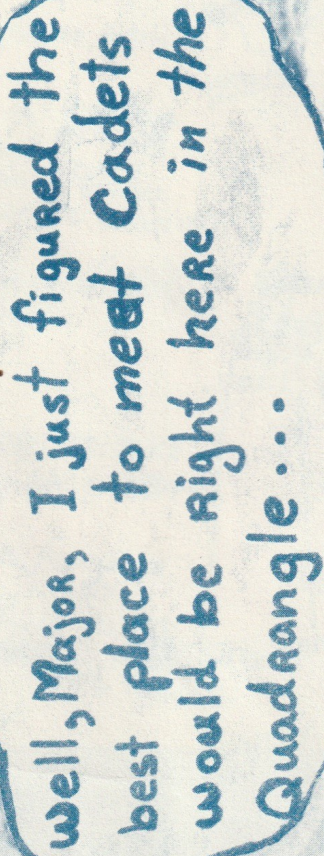 Well, Major, I just figured the
best place to meet Cadets
would be Right here in the
Quadrangle...